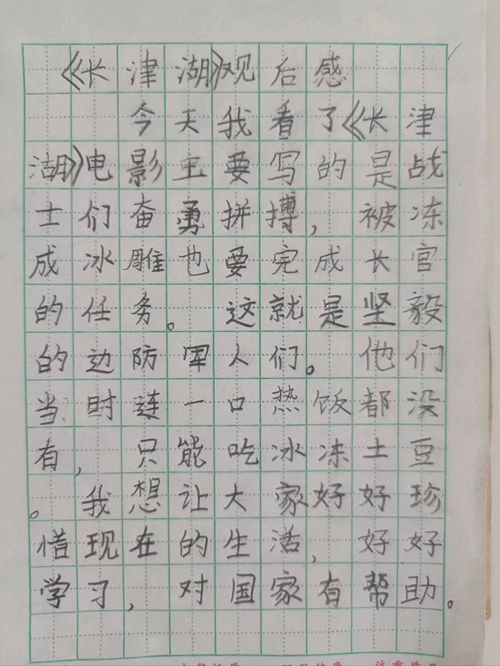 《长津湖》观后感
今天我看了《长津
湖》电影主要写的是战
士们奋勇拼搏，被冻
成冰雕也要完成长官
的任务。这就是坚毅
的边防军人们。他们
当时连一口热饭都没
有，只能吃冰冻土豆
。我想让大家好好珍
惜现在的生活，好好
学习，对国家有帮助。